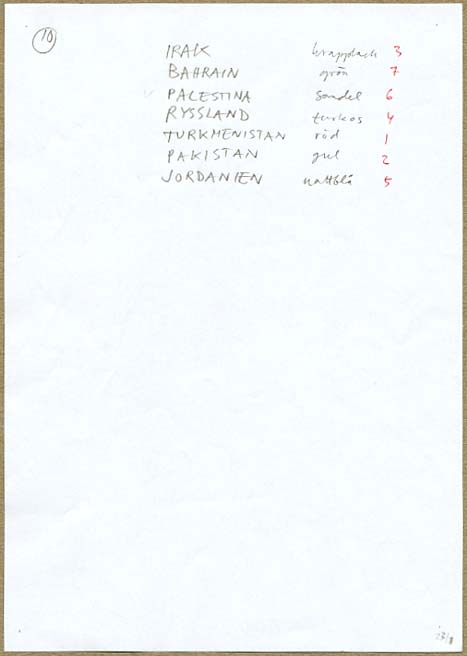 10
IRAK krapplack 3
BAHRAIN grön 7
PALESTINA sandel 6
RYSSLAND turkos 4
TURKMENISTAN röd 1
PAKISTAN gul 2
JORDANIEN nattblå 5